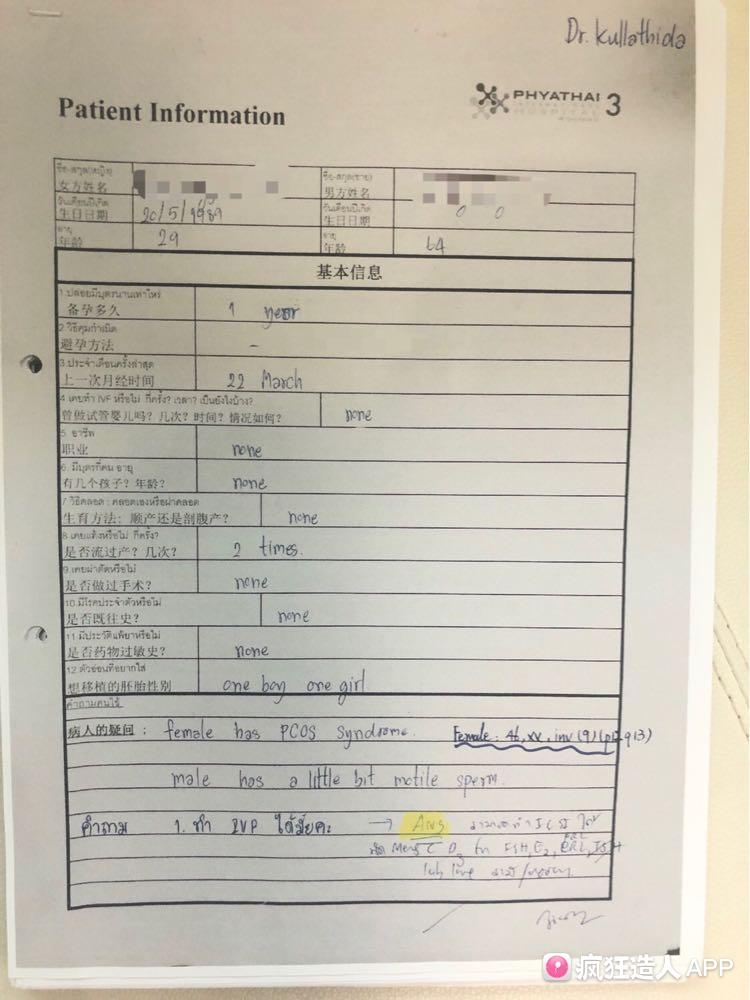 Dr. Kullathida
Patient Information
PHYATHAI 3
ชื่อ-สกุล(หญิง)
女方姓名
ชื่อ-สกุล(ชาย)
男方姓名
วันเดือนปีเกิด
生日日期 20/5/1989
วันเดือนปีเกิด
生日日期
อายุ
年龄 29
อายุ
年龄 64
基本信息
1.ปล่อยมีบุตรนานเท่าไหร่
备孕多久 1 year
2.วิธีคุมกำเนิด
避孕方法 -
3.ประจำเดือนครั้งล่าสุด
上一次月经时间 22 March
4.เคยทำ IVF หรือไม่ กี่ครั้ง? เวลา? เป็นยังไงบ้าง?
曾做试管婴儿吗？几次？时间？情况如何？ none
5. อาชีพ
职业 none
6. มีบุตรกี่คน อายุ
有几个孩子？年龄？ none
7 วิธีคลอด : คลอดเองหรือผ่าคลอด
生育方法：顺产还是剖腹产？ none
8.เคยแท้งหรือไม่ กี่ครั้ง?
是否流过产？几次？ 2 times.
9.เคยผ่าตัดหรือไม่
是否做过手术？ none
10.มีโรคประจำตัวหรือไม่
是否既往史？ none
11.มีประวัติแพ้ยาหรือไม่
是否药物过敏史？ none
12.ตัวอ่อนที่อยากใส่
想移植的胚胎性别 one boy one girl
คำถามคนไข้
病人的疑问： female has PCOS syndrome. Female: 46,XX, inv(9)(p12q13)
male has a little bit motile sperm.
คำถาม 1. ทำ IVF ได้มั้ยคะ → Ans ICSI ได้
Mens D3 FSH, E2, PRL
疯狂造人 APP